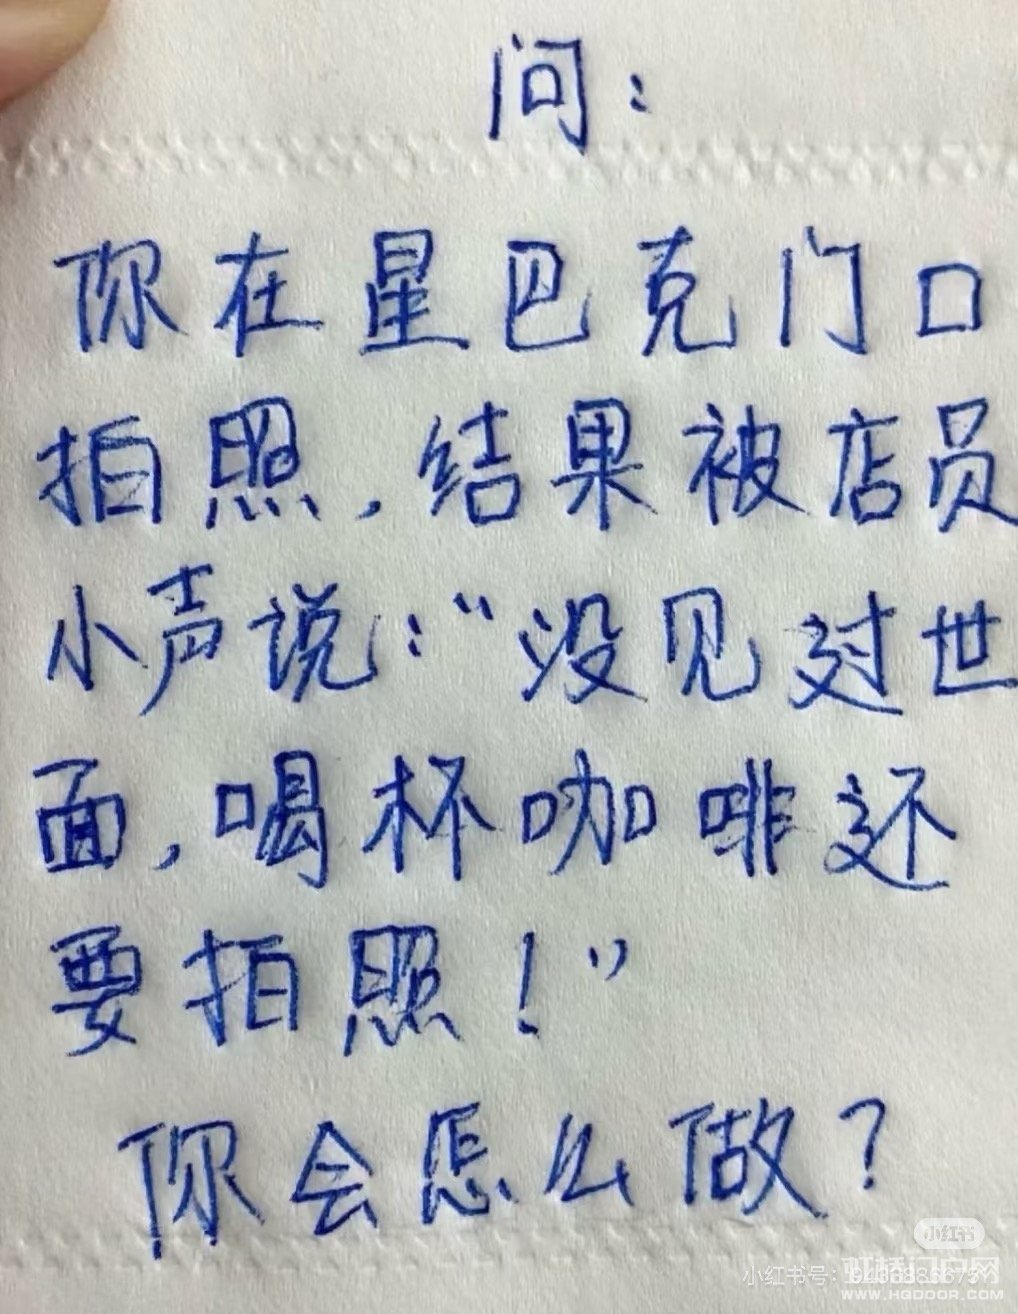 问：
你在星巴克门口
拍照，结果被店员
小声说："没见过世
面，喝杯咖啡还
要拍照！"
你会怎么做？
小红书
虹桥门户网
小红书号：
WWW.HQDOOR.COM